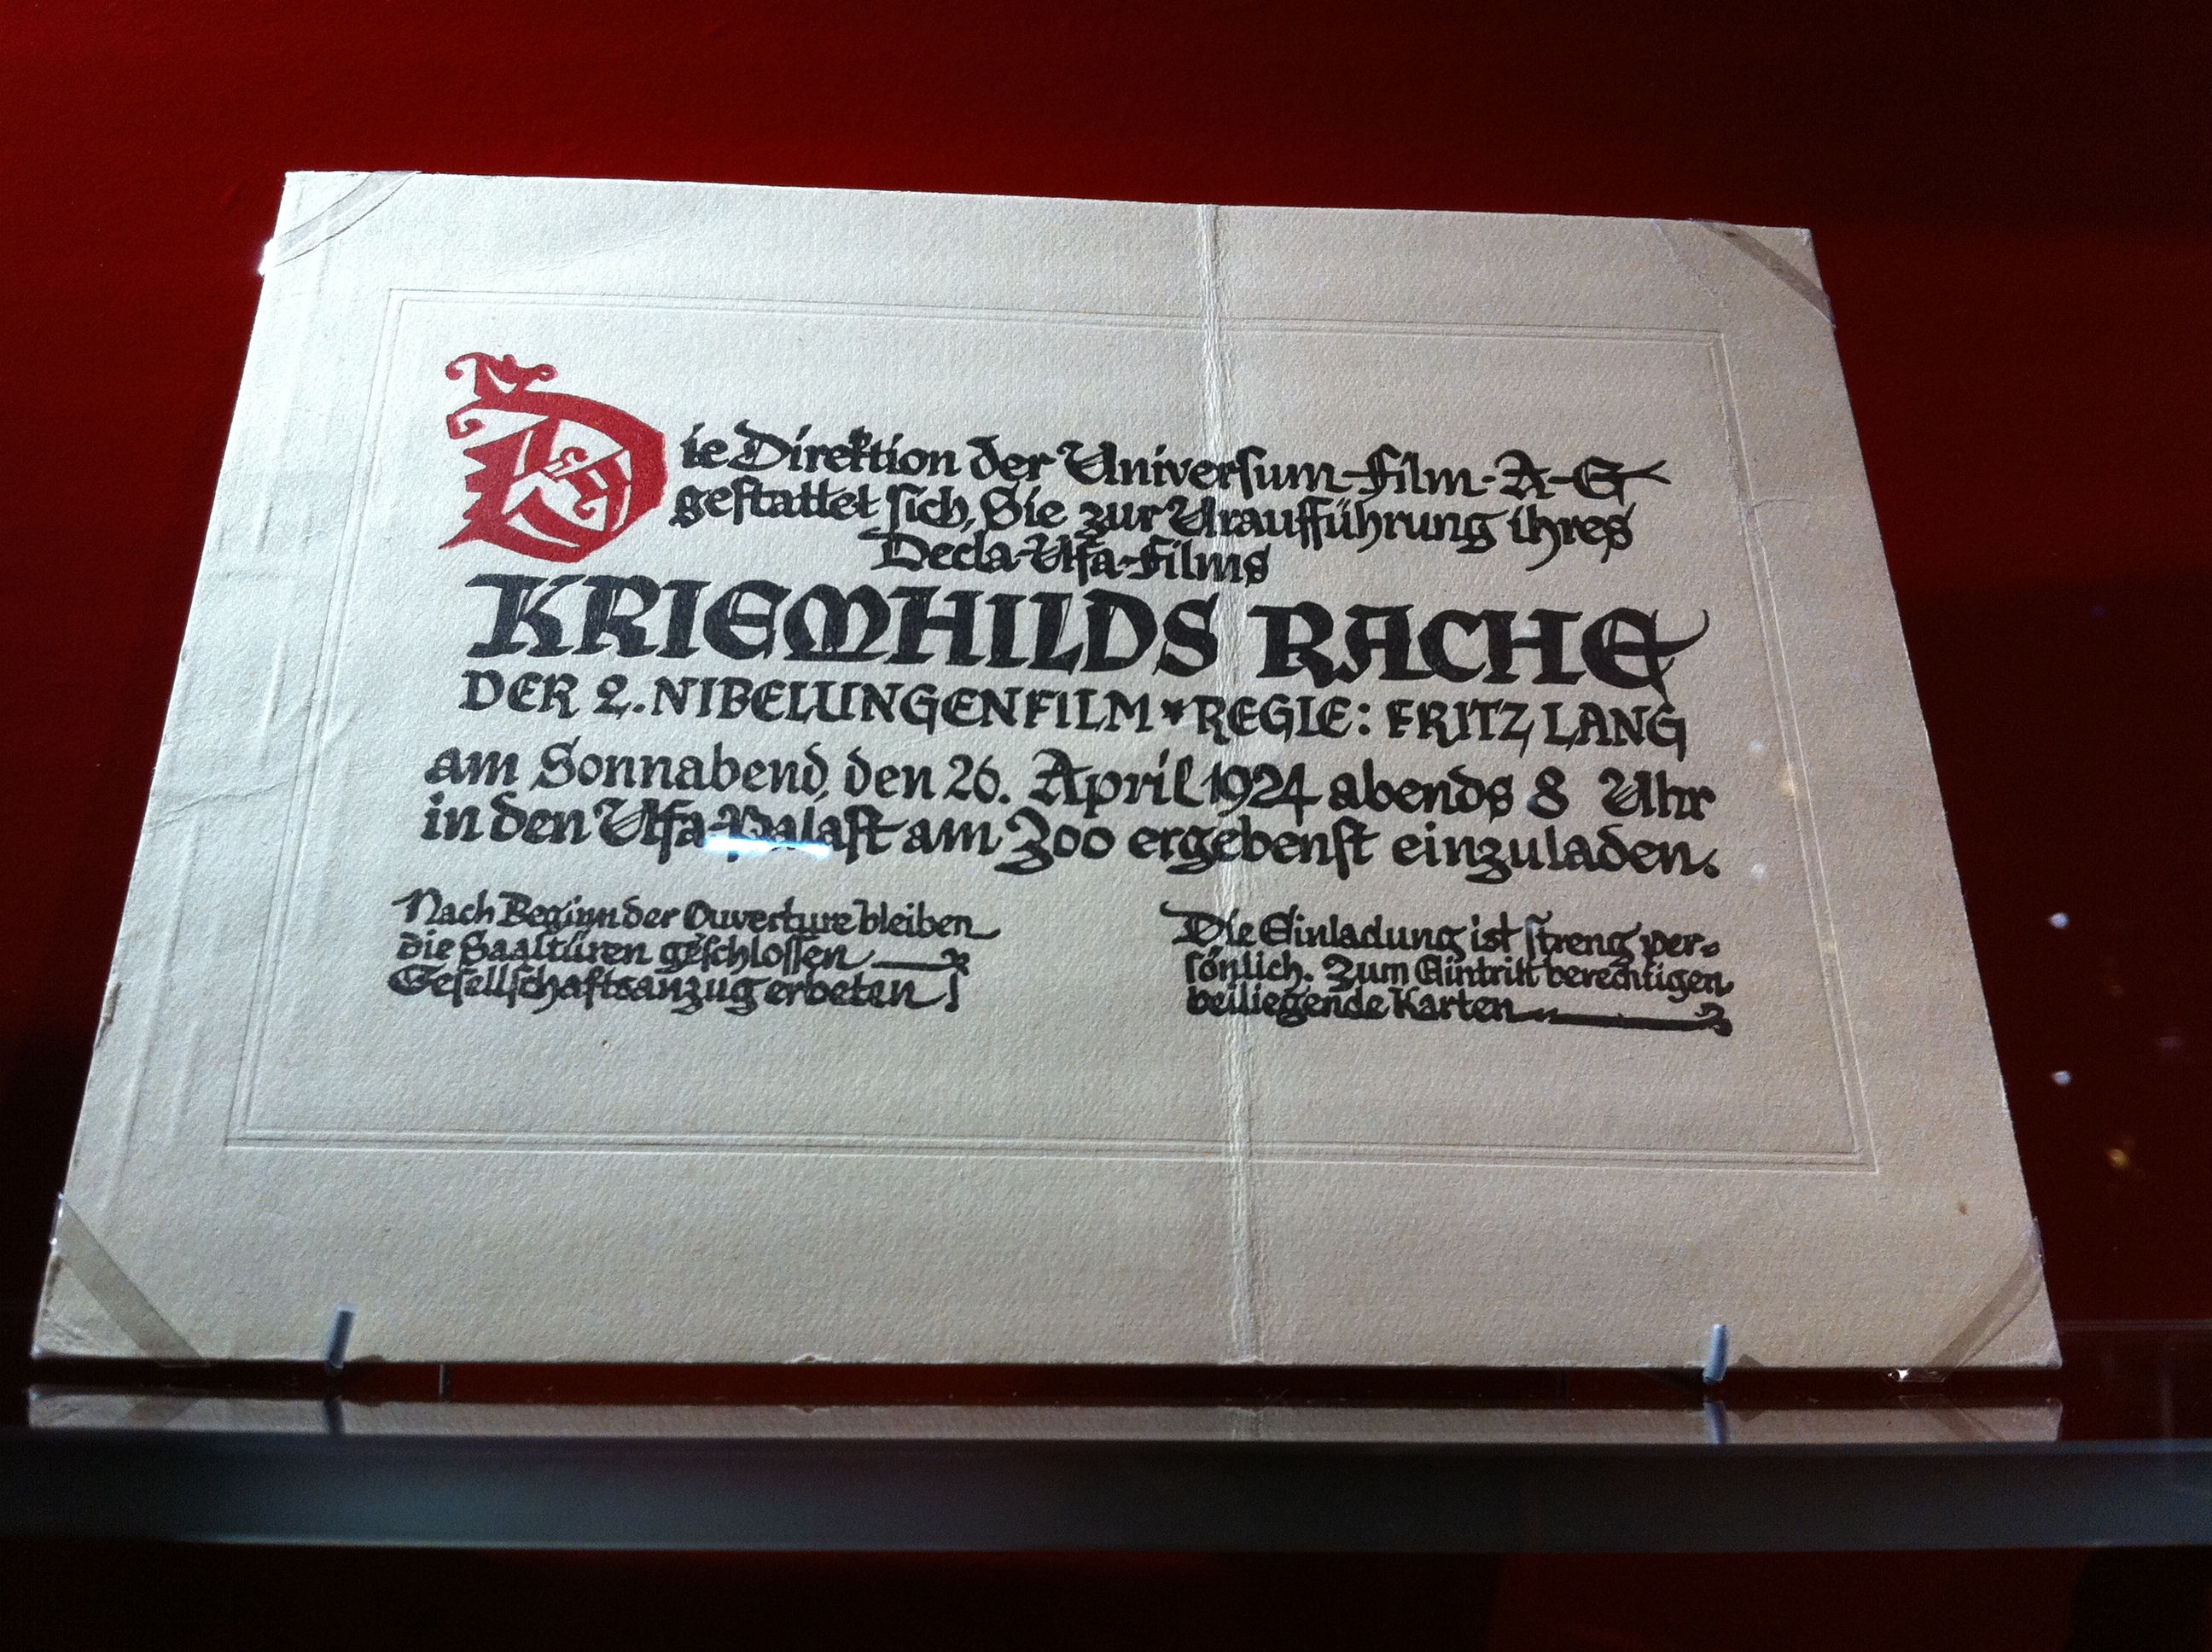 Die Direktion der Universum-Film-A-G
gestattet sich, Sie zur Uraufführung ihres
Decla-Ufa-Films
KRIEMHILDS RACHE
DER 2. NIBELUNGENFILM * REGIE: FRITZ LANG
am Sonnabend, den 26. April 1924 abends 8 Uhr
in den Ufa-Palast am Zoo ergebenst einzuladen.
Nach Beginn der Ouverture bleiben
die Saaltüren geschlossen
Gesellschaftsanzug erbeten!
Die Einladung ist streng per-
sönlich. Zum Eintritt berechtigen
beiliegende Karten